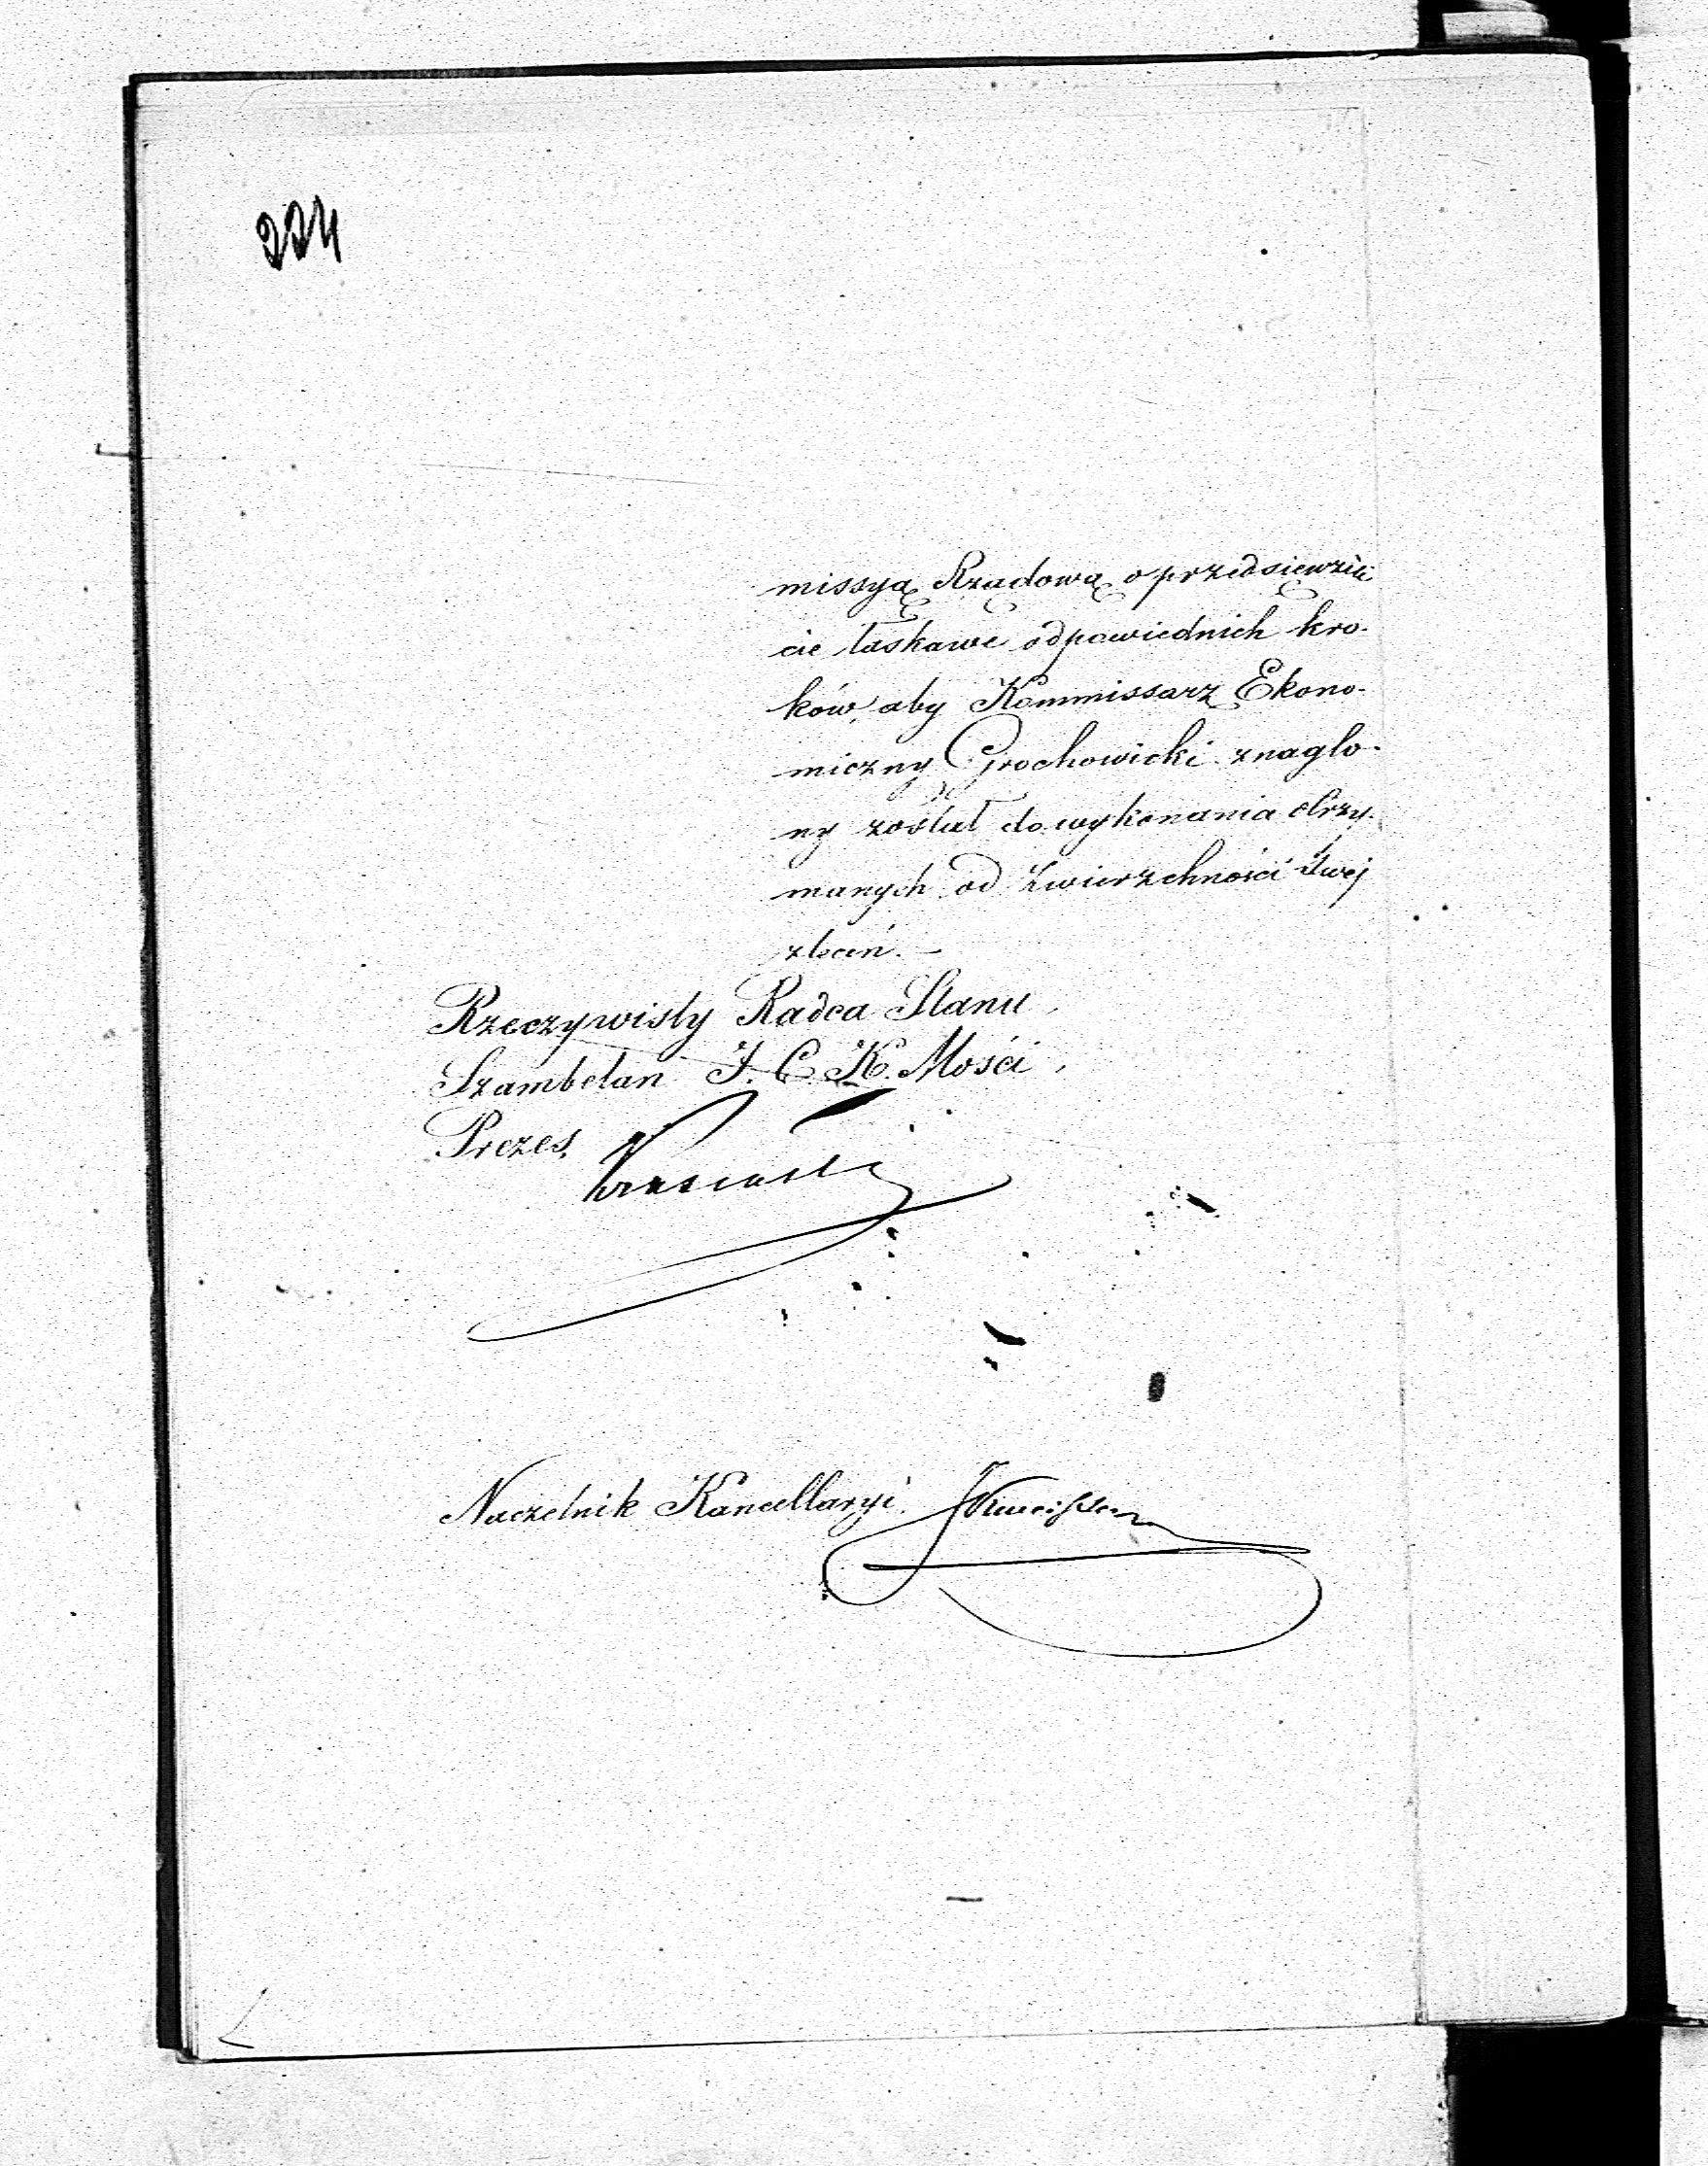 224
missyą Rządową o przedsięwzię
cie łaskawe odpowiednich kro-
ków, aby Kommissarz Ekono-
miczny Grochowicki znaglo-
ny został do wykonania otrzy-
manych od Zwierzchności Swej
zleceń. –
Rzeczywisty Radca Stanu,
Szambelan J. C. K. Mości,
Prezes,
Naczelnik Kancellaryi